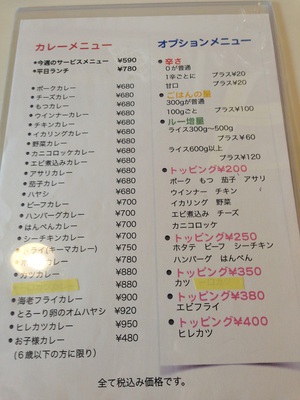 カレーメニュー
*今週のサービスメニュー ¥590
*平日ランチ ¥780
*ポークカレー ¥680
*チーズカレー ¥680
*もつカレー ¥680
*ウインナーカレー ¥680
*チキンカレー ¥680
*イカリングカレー ¥680
*野菜カレー ¥680
*カニコロッケカレー ¥680
*エビ煮込みカレー ¥680
*アサリカレー ¥680
*茄子カレー ¥680
*ハヤシ ¥680
*ビーフカレー ¥700
*ハンバーグカレー ¥700
*はんぺんカレー ¥700
*シーチキンカレー ¥700
ドライ(キーマカレー) ¥750
カツカレー ¥880
*海老フライカレー ¥900
*とろーり卵のオムハヤシ ¥920
*ヒレカツカレー ¥950
*お子様カレー ¥480
(6歳以下の方に限り)
オプションメニュー
*辛さ
0が普通
1辛ごとに プラス¥20
甘口 プラス¥20
*ごはんの量
300gが普通
100gごとに プラス¥100
*ルー増量
ライス300g~500g
プラス¥60
ライス600g以上
プラス¥120
*トッピング¥200
ポーク もつ 茄子 アサリ
ウインナー チキン
イカリング 野菜
エビ煮込み チーズ
カニコロッケ
*トッピング¥250
ホタテ ビーフ シーチキン
ハンバーグ はんぺん
*トッピング¥350
カツ
*トッピング¥380
エビフライ
*トッピング¥400
ヒレカツ
全て税込み価格です。